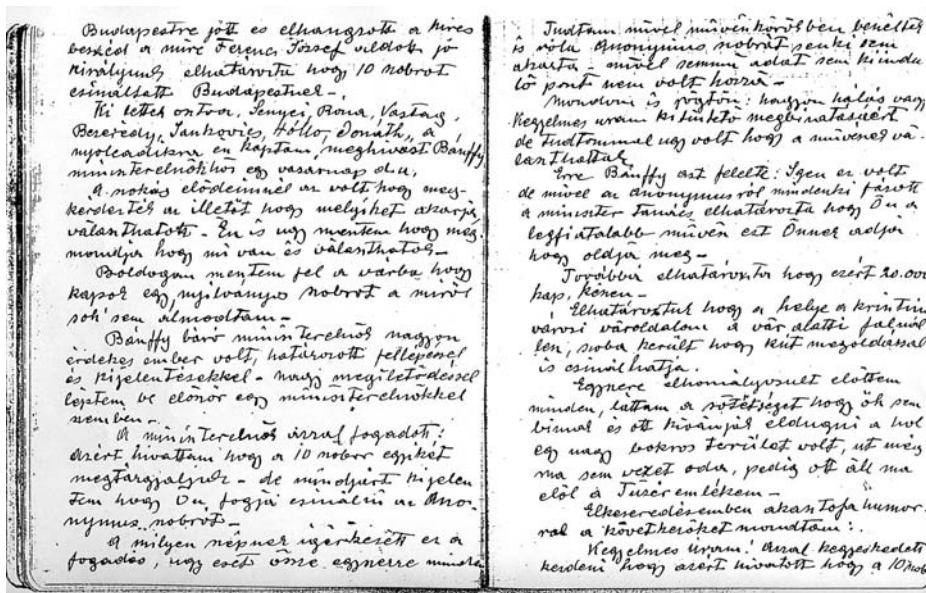 Budapestre jött és elhangzott a hires
beszéd a mire Ferenc József áldott jó
királyunk elhatározta hogy 10 szobrot
csináltatt Budapestnek -.
Ki lettek osztva, Senyei, Rona, Vastag,
Bezerédy, Jankovics, Holló, Donáth, a
nyolcadikra én kaptam meghivást Bánffy
miniszterelnökhöz egy vasárnap d.u.
A szokás elődeimnél az volt hogy meg-
kérdezték az illetőt hogy melyiket akarja,
választhatott - Én is ugy mentem hogy meg-
mondja hogy mi van és választhatok -
Boldogan mentem fel a várba hogy
kapok egy nyilvános szobrot a miről
soh' sem álmodtam -
Bánffy báró miniszterelnök nagyon
érdekes ember volt, határozott fellépéssel
és kijelentésekkel - nagy megilletődéssel
léptem be először egy miniszterelnökkel
szemben -
A miniszterelnök azzal fogadott:
Azért hivattam hogy a 10 szobor egyikét
megtárgyaljuk - de mindjárt kijelen
tem hogy Ön fogja csinálni az Ano-
nymus szobrot -
A milyen szépnek igérkezett ez a
fogadás, ugy esett össze egyszerre minden
Tudtam mivel művészkörökben beszélték
is róla Anonymus szobrát senki sem
akarta - mivel semmi adat sem kiindu
ló pont nem volt hozzá -
Mondom is rögtön: nagyon hálás vagyok
Kegyelmes uram kitüntető megbizatásáért
de tudtommal ugy volt hogy a művészek vá-
laszthattak
Erre Bánffy azt felelte: Igen ez volt
de mivel az Anonymusról mindenki fázott
a miniszter tanács elhatározta hogy Ön a
legfiatalabb művész ezt Önnek adja
hogy oldja meg -
Továbbá elhatározta hogy ezért 20.000
kap, készen -
Elhatároztuk hogy a helye a krisztina
városi városoldalon a vár alatti falnál
lesz, szóba került hogy kút megoldással
is csinálhatja.
Egyszerre elhomályosult előttem
minden, láttam a sötétséget hogy ők sem
biznak és ott kivánják eldugni a hol
egy nagy bokros terület volt, ut még
ma sem vezet oda, pedig ott áll ma
elől a Tüzér emlékem -
Elkeseredésemben akasztófa humor-
ral a következőket mondtam:
Kegyelmes Uram! Azzal kegyeskedett
kezdeni hogy azért hivatott hogy a 10 szob